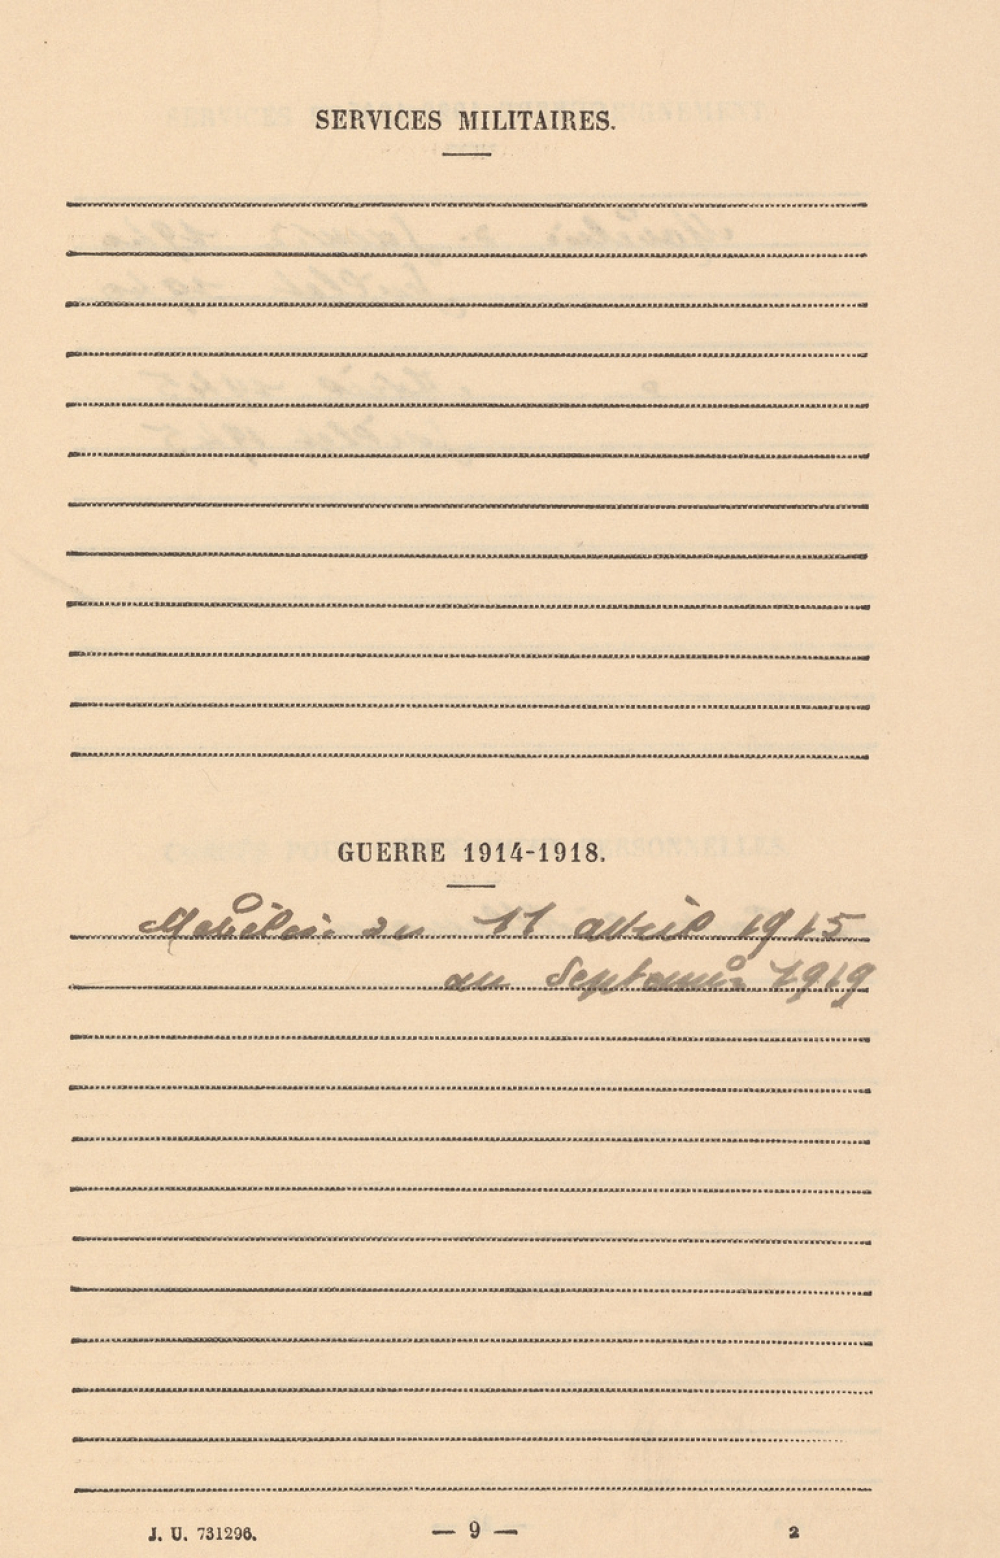 SERVICES MILITAIRES.
GUERRE 1914-1918.
Mobilisé du 11 avril 1915
au Septembre 1919
J. U. 731296.
— 9 —
2